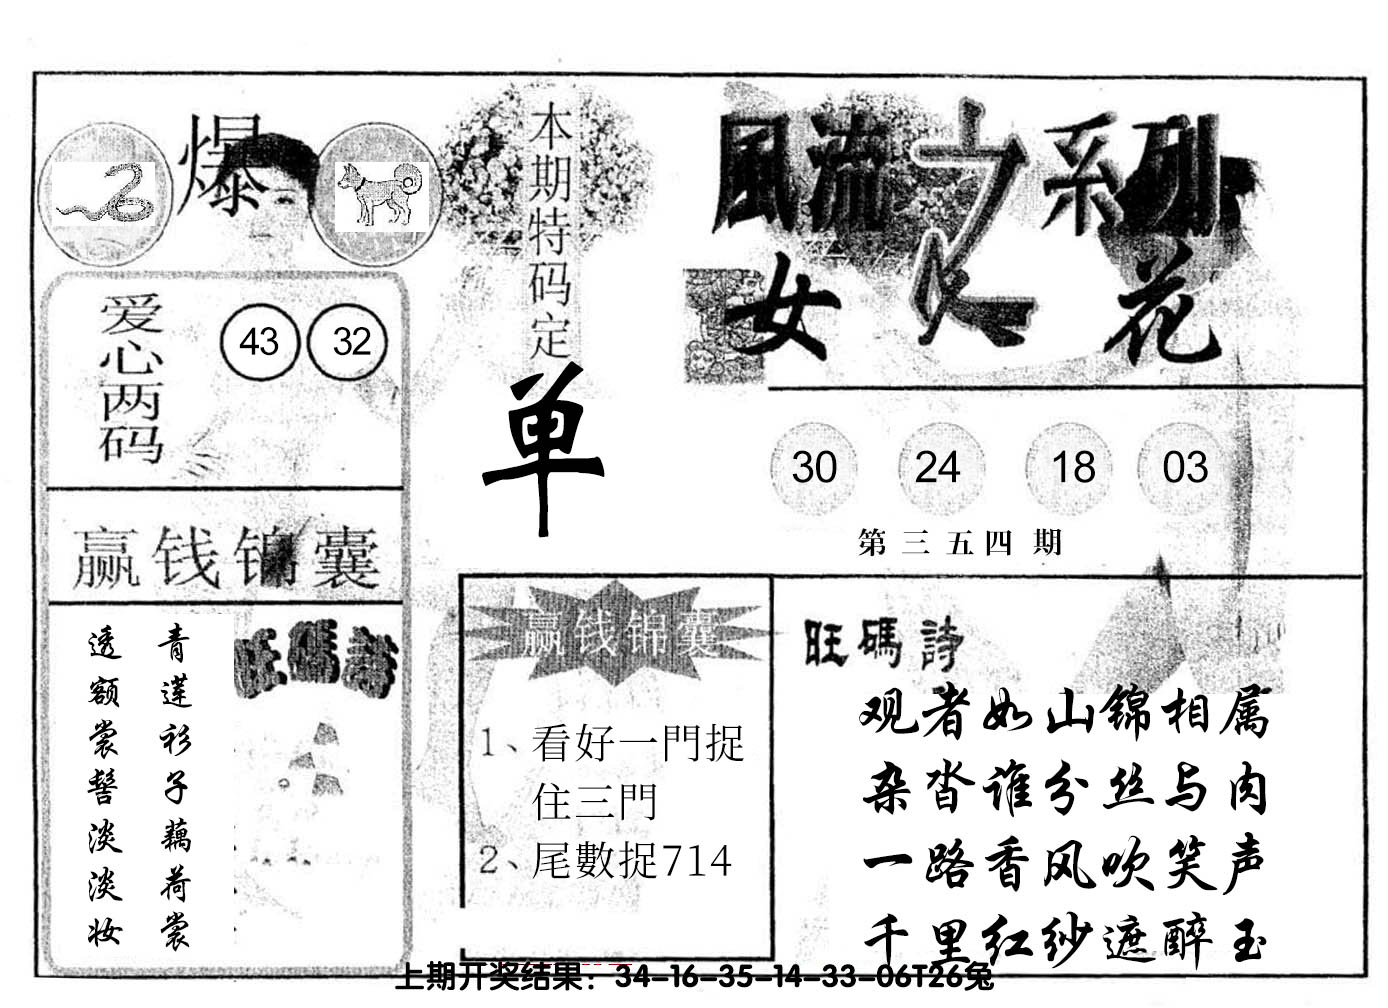 爆
本期特码定
单
風流之系列
女人花
爱心两码
43 32
30 24 18 03
第三五四期
赢钱锦囊
旺碼詩
青莲衫子藕荷裳
透额裳髻淡淡妆
赢钱锦囊
1、看好一門捉
住三門
2、尾數捉714
旺碼詩
观者如山锦相属
杂沓谁分丝与肉
一路香风吹笑声
千里红纱遮醉玉
上期开奖结果：34-16-35-14-33-06T26兔